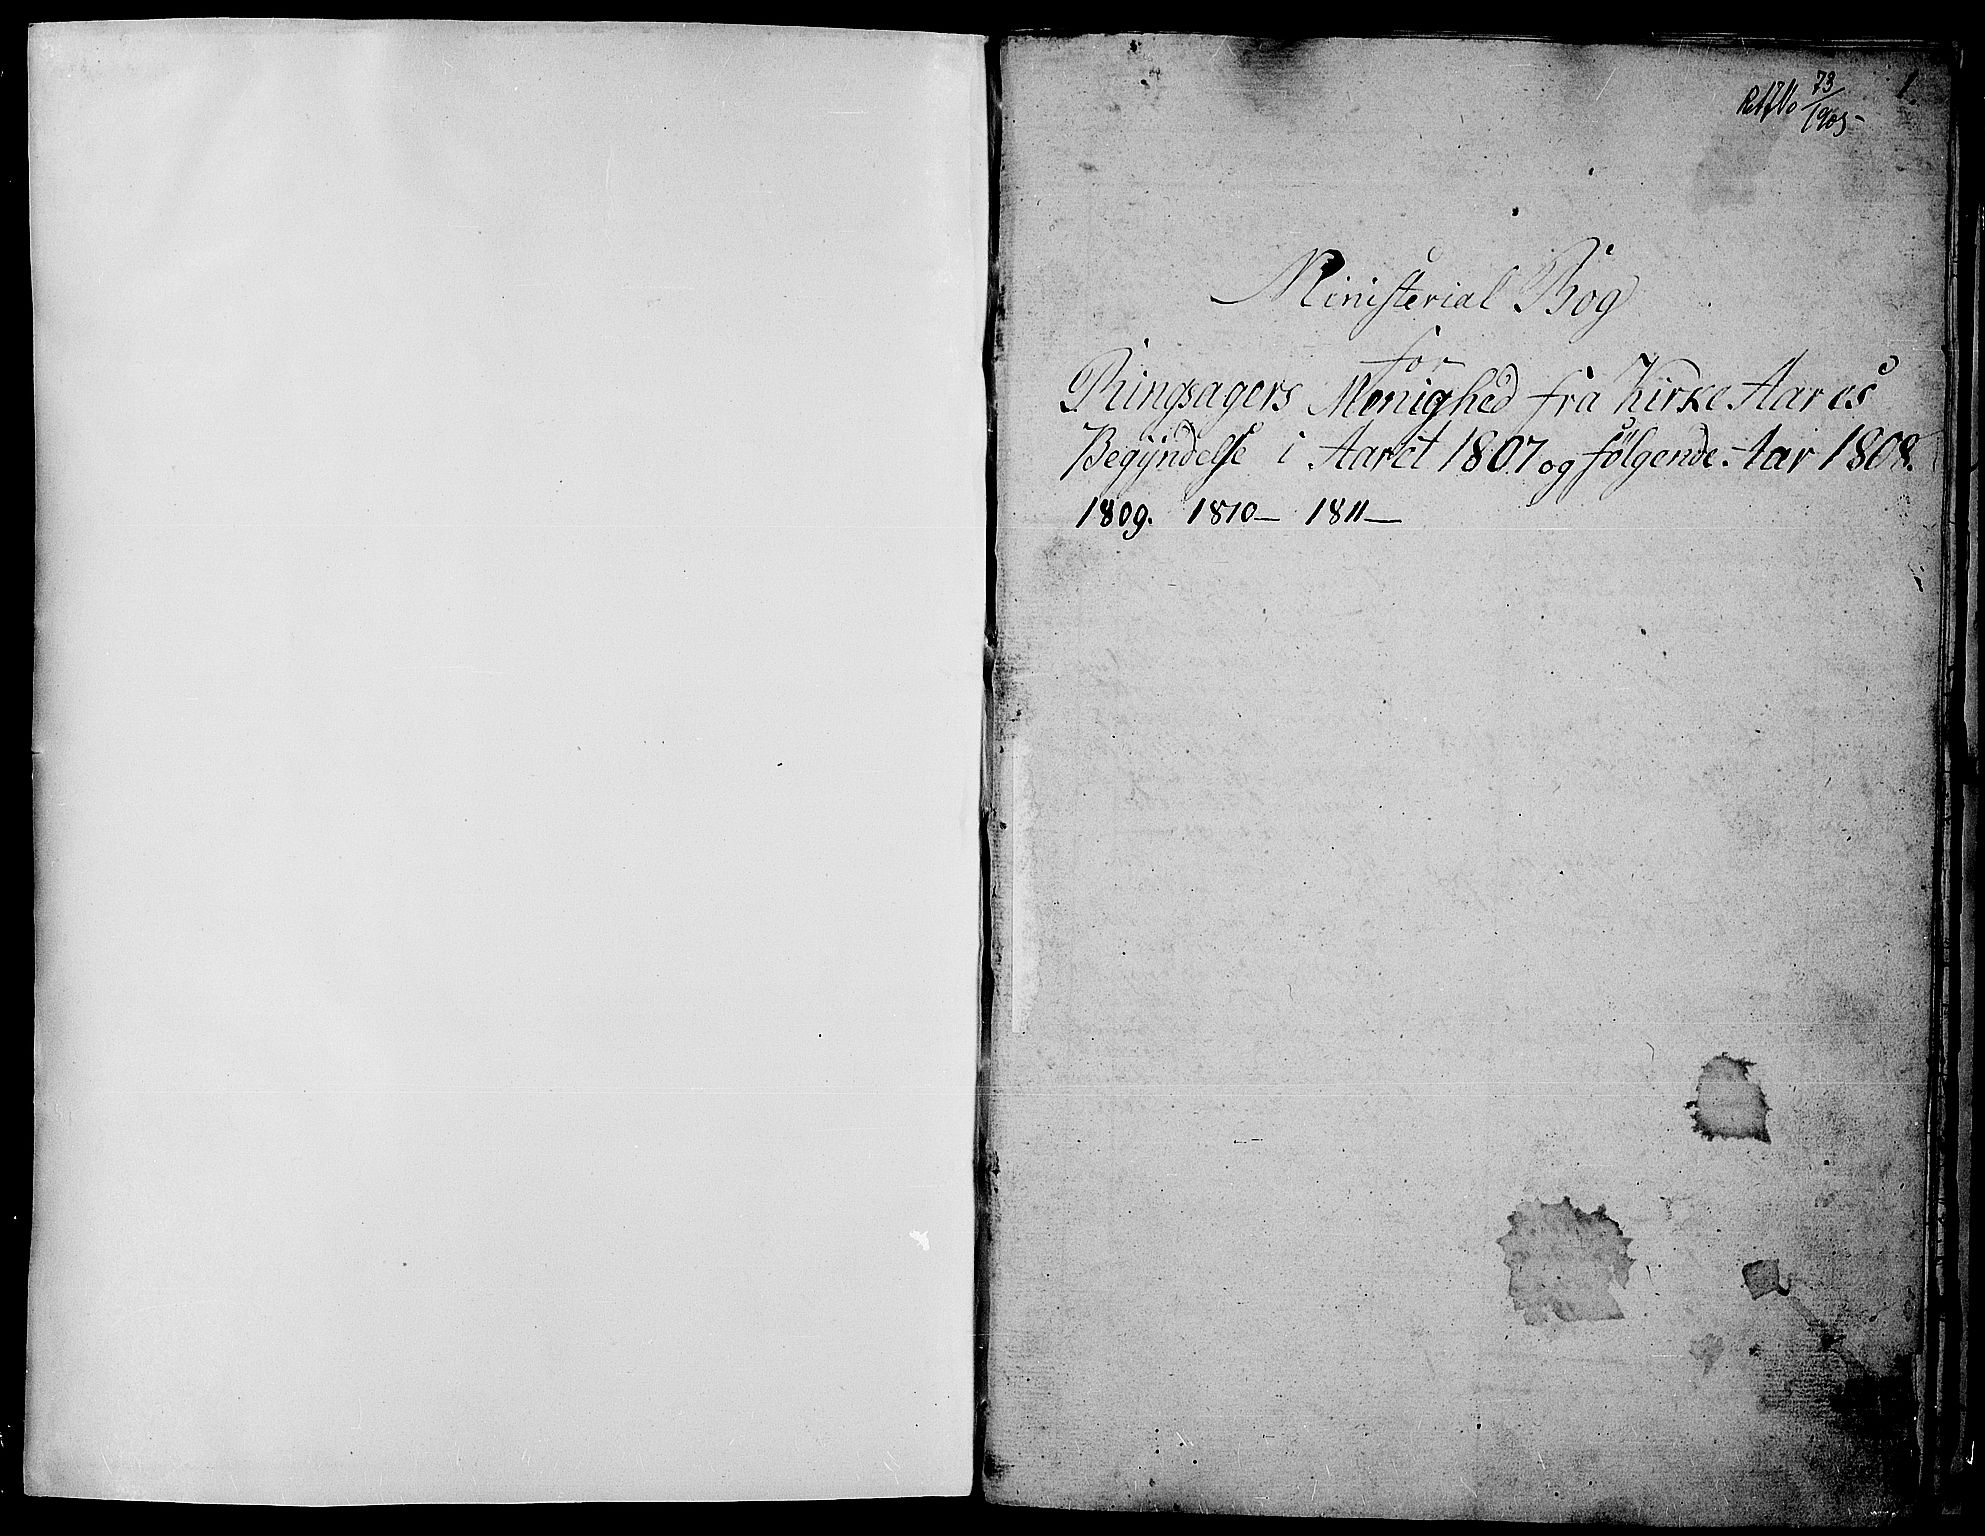 73
1905-
1.
Ministerial Bog
for
Ringsagers Menighed fra Kirke Aarets
Begÿndelse i Aaret 1807 og følgende Aar 1808.
1809. 1810— 1811—